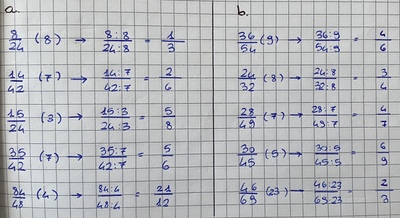 a.
8/24 (8) → 8:8/24:8 = 1/3
14/42 (7) → 14:7/42:7 = 2/6
15/24 (3) → 15:3/24:3 = 5/8
35/42 (7) → 35:7/42:7 = 5/6
84/48 (4) → 84:4/48:4 = 21/12
b.
36/54 (9) → 36:9/54:9 = 4/6
24/32 (8) → 24:8/32:8 = 3/4
28/49 (7) → 28:7/49:7 = 4/7
30/45 (5) → 30:5/45:5 = 6/9
46/69 (23) → 46:23/69:23 = 2/3